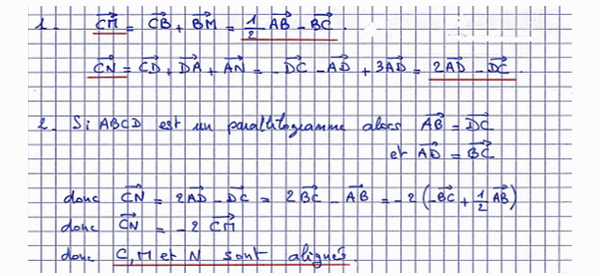 1. $\vec{CM} = \vec{CB} + \vec{BM} = \frac{1}{2}\vec{AB} - \vec{BC}$.
$\vec{CN} = \vec{CD} + \vec{DA} + \vec{AN} = -\vec{DC} - \vec{AD} + 3\vec{AD} = 2\vec{AD} - \vec{DC}$.
2. Si ABCD est un parallélogramme alors $\vec{AB} = \vec{DC}$
et $\vec{AD} = \vec{BC}$
donc $\vec{CN} = 2\vec{AD} - \vec{DC} = 2\vec{BC} - \vec{AB} = -2\left(-\vec{BC} + \frac{1}{2}\vec{AB}\right)$
donc $\vec{CN} = -2\vec{CM}$
donc C, M et N sont alignés.